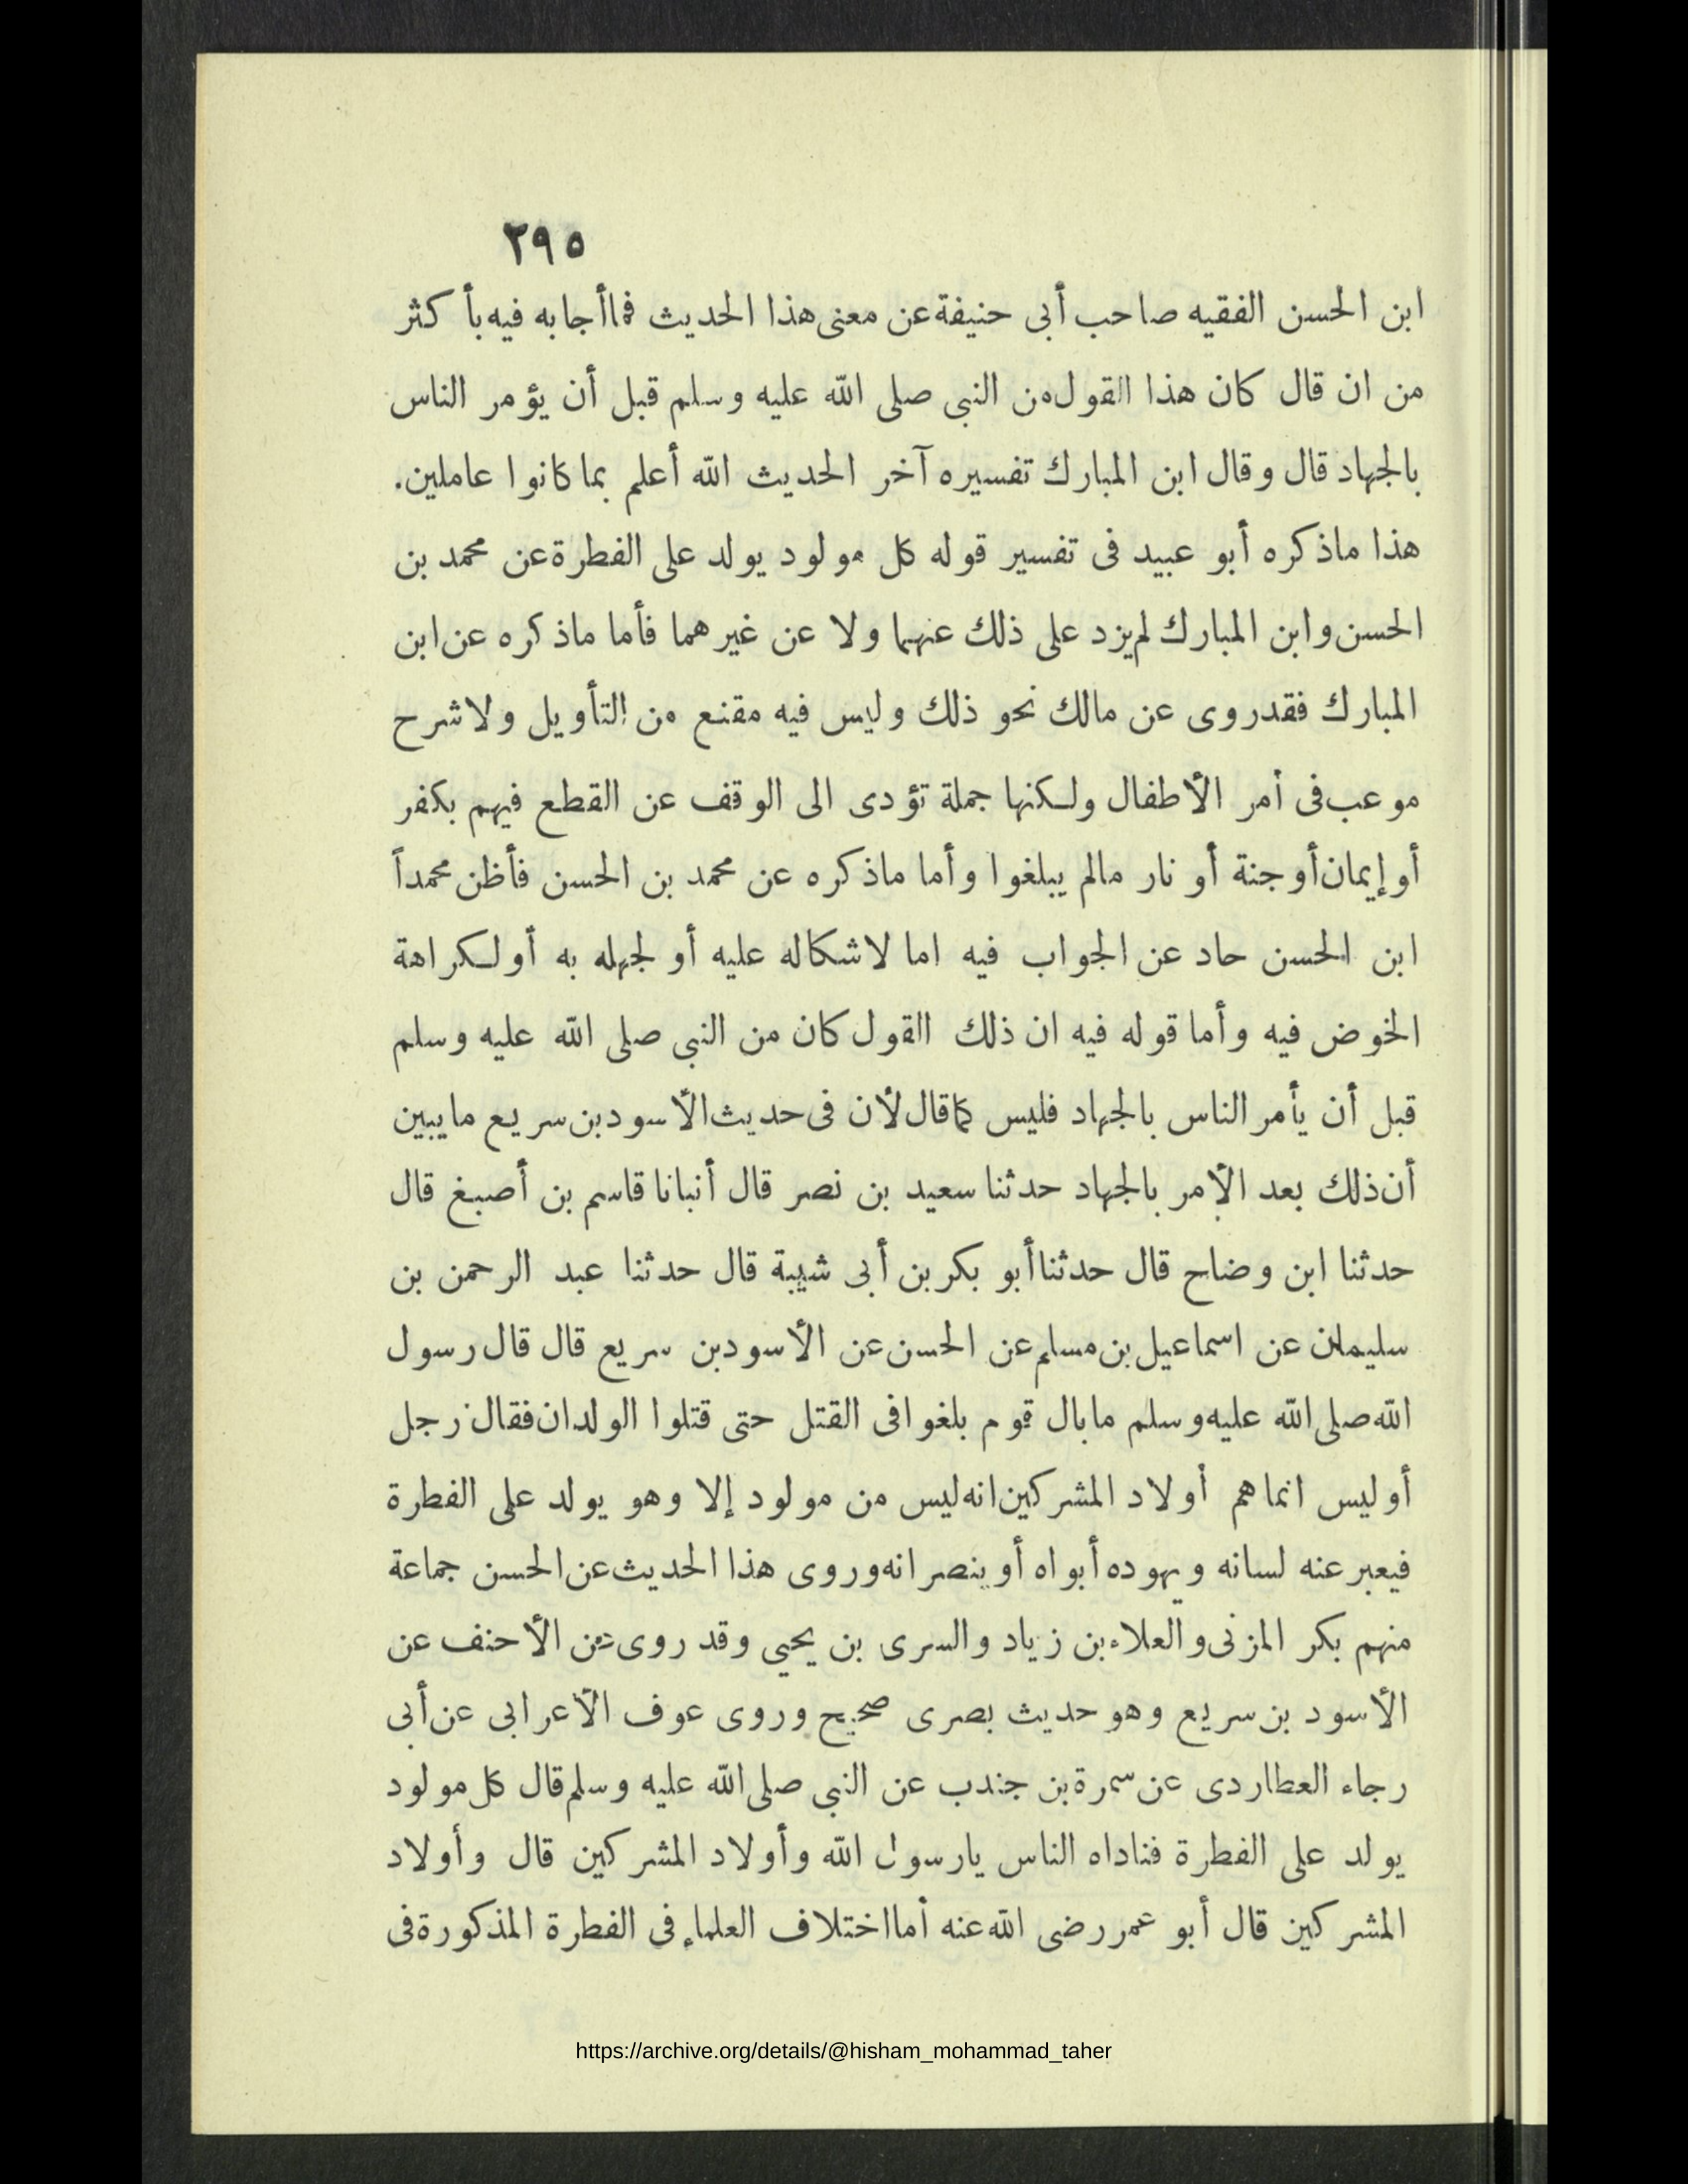 ٢٩٥
ابن الحسن الفقيه صاحب أبى حنيفة عن معنى هذا الحديث فما أجابه فيه بأكثر
من ان قال كان هذا القول من النبى صلى الله عليه وسلم قبل أن يؤمر الناس
بالجهاد قال وقال ابن المبارك تفسيره آخر الحديث الله أعلم بما كانوا عاملين.
هذا ماذكره أبو عبيد فى تفسير قوله كل مولود يولد على الفطرة عن محمد بن
الحسن وابن المبارك لم يزد على ذلك عنهما ولا عن غيرهما فأما ماذكره عن ابن
المبارك فقد روى عن مالك نحو ذلك وليس فيه مقنع من التأويل ولا شرح
موعب فى أمر الأطفال ولكنها جملة تؤدى الى الوقف عن القطع فيهم بكفر
أو إيمان أو جنة أو نار مالم يبلغوا وأما ماذكره عن محمد بن الحسن فأظن محمداً
ابن الحسن حاد عن الجواب فيه اما لاشكاله عليه أو لجهله به أو لكراهة
الخوض فيه وأما قوله فيه ان ذلك القول كان من النبى صلى الله عليه وسلم
قبل أن يأمر الناس بالجهاد فليس كما قال لأن فى حديث الأسود بن سريع مايبين
أن ذلك بعد الأمر بالجهاد حدثنا سعيد بن نصر قال أنبانا قاسم بن أصبغ قال
حدثنا ابن وضاح قال حدثنا أبو بكر بن أبى شيبة قال حدثنا عبد الرحمن بن
سليمان عن اسماعيل بن مسلم عن الحسن عن الأسود بن سريع قال قال رسول
الله صلى الله عليه وسلم مابال قوم بلغوا فى القتل حتى قتلوا الولدان فقال رجل
أو ليس انما هم أولاد المشركين انه ليس من مولود إلا وهو يولد على الفطرة
فيعبر عنه لسانه ويهوده أبواه أو ينصرانه وروى هذا الحديث عن الحسن جماعة
منهم بكر المزنى والعلاء بن زياد والسرى بن يحيى وقد روى عن الأحنف عن
الأسود بن سريع وهو حديث بصرى صحيح وروى عوف الأعرابى عن أبى
رجاء العطاردى عن سمرة بن جندب عن النبى صلى الله عليه وسلم قال كل مولود
يولد على الفطرة فناداه الناس يارسول الله وأولاد المشركين قال وأولاد
المشركين قال أبو عمر رضى الله عنه أما اختلاف العلماء فى الفطرة المذكورة فى
https://archive.org/details/@hisham_mohammad_taher